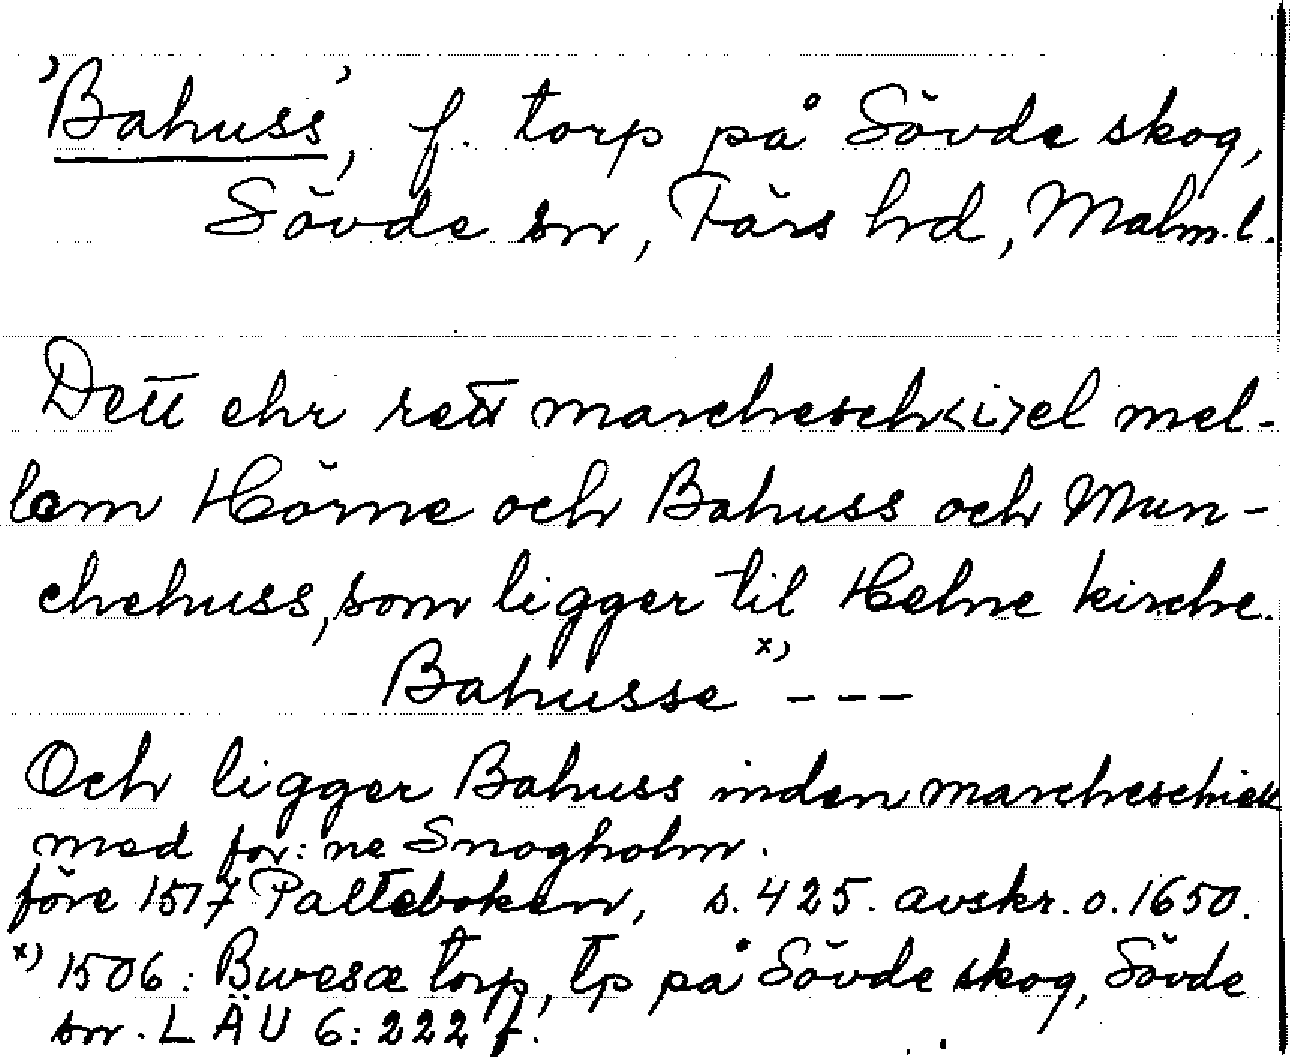 'Bahuss', f. torp på Sövde skog,
Sövde sn, Färs hd, Malm.l.
Dett ehr rett marchesch
<i>el mel-
lem Hörne och Bahuss och Mun-
chehuss, som ligger til Helne kirche.
Bahusse x) - - -
Och ligger Bahuss inden marcheschiell
med for:ne Snogholm.
före 1517 Palteboken, s. 425. avskr. o. 1650.
x) 1506: Buvesæ torp, tp på Sövde skog, Sövde
sn. LÄU 6: 222 f.